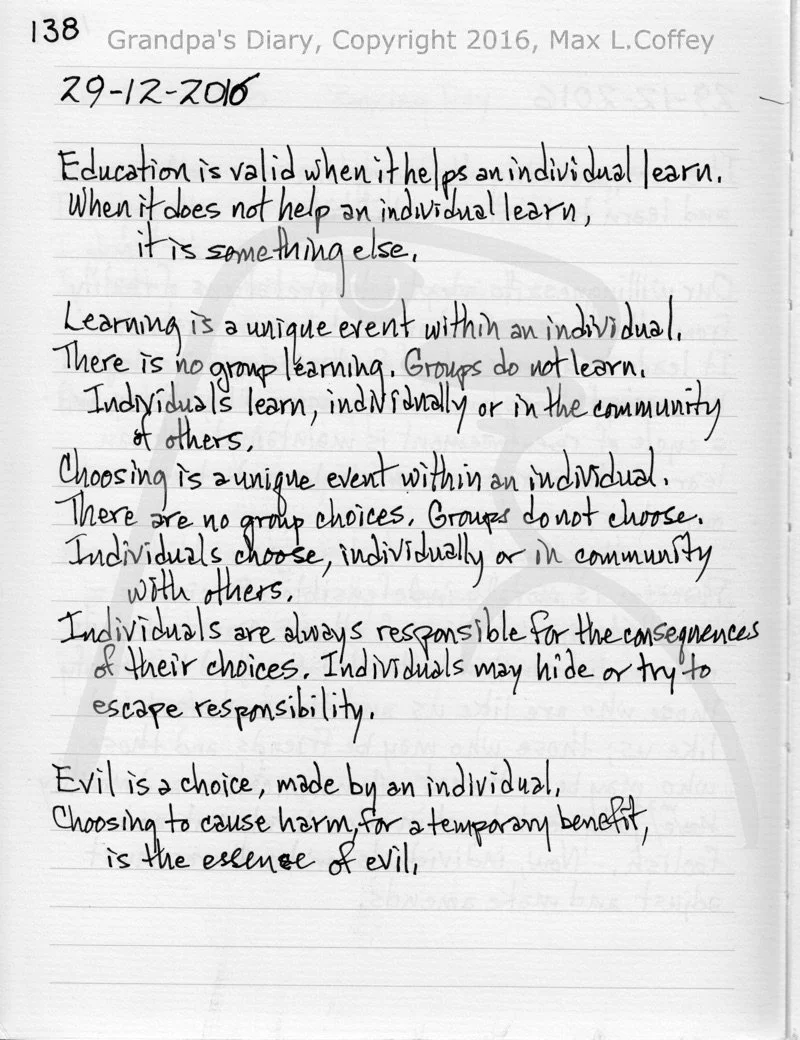 138
Grandpa's Diary, Copyright 2016, Max L.Coffey
29-12-2016
Education is valid when it helps an individual learn.
When it does not help an individual learn,
it is something else.
Learning is a unique event within an individual.
There is no group learning. Groups do not learn.
Individuals learn, individually or in the community
of others.
Choosing is a unique event within an individual.
There are no group choices. Groups do not choose.
Individuals choose, individually or in community
with others.
Individuals are always responsible for the consequences
of their choices. Individuals may hide or try to
escape responsibility.
Evil is a choice, made by an individual.
Choosing to cause harm, for a temporary benefit,
is the essence of evil.